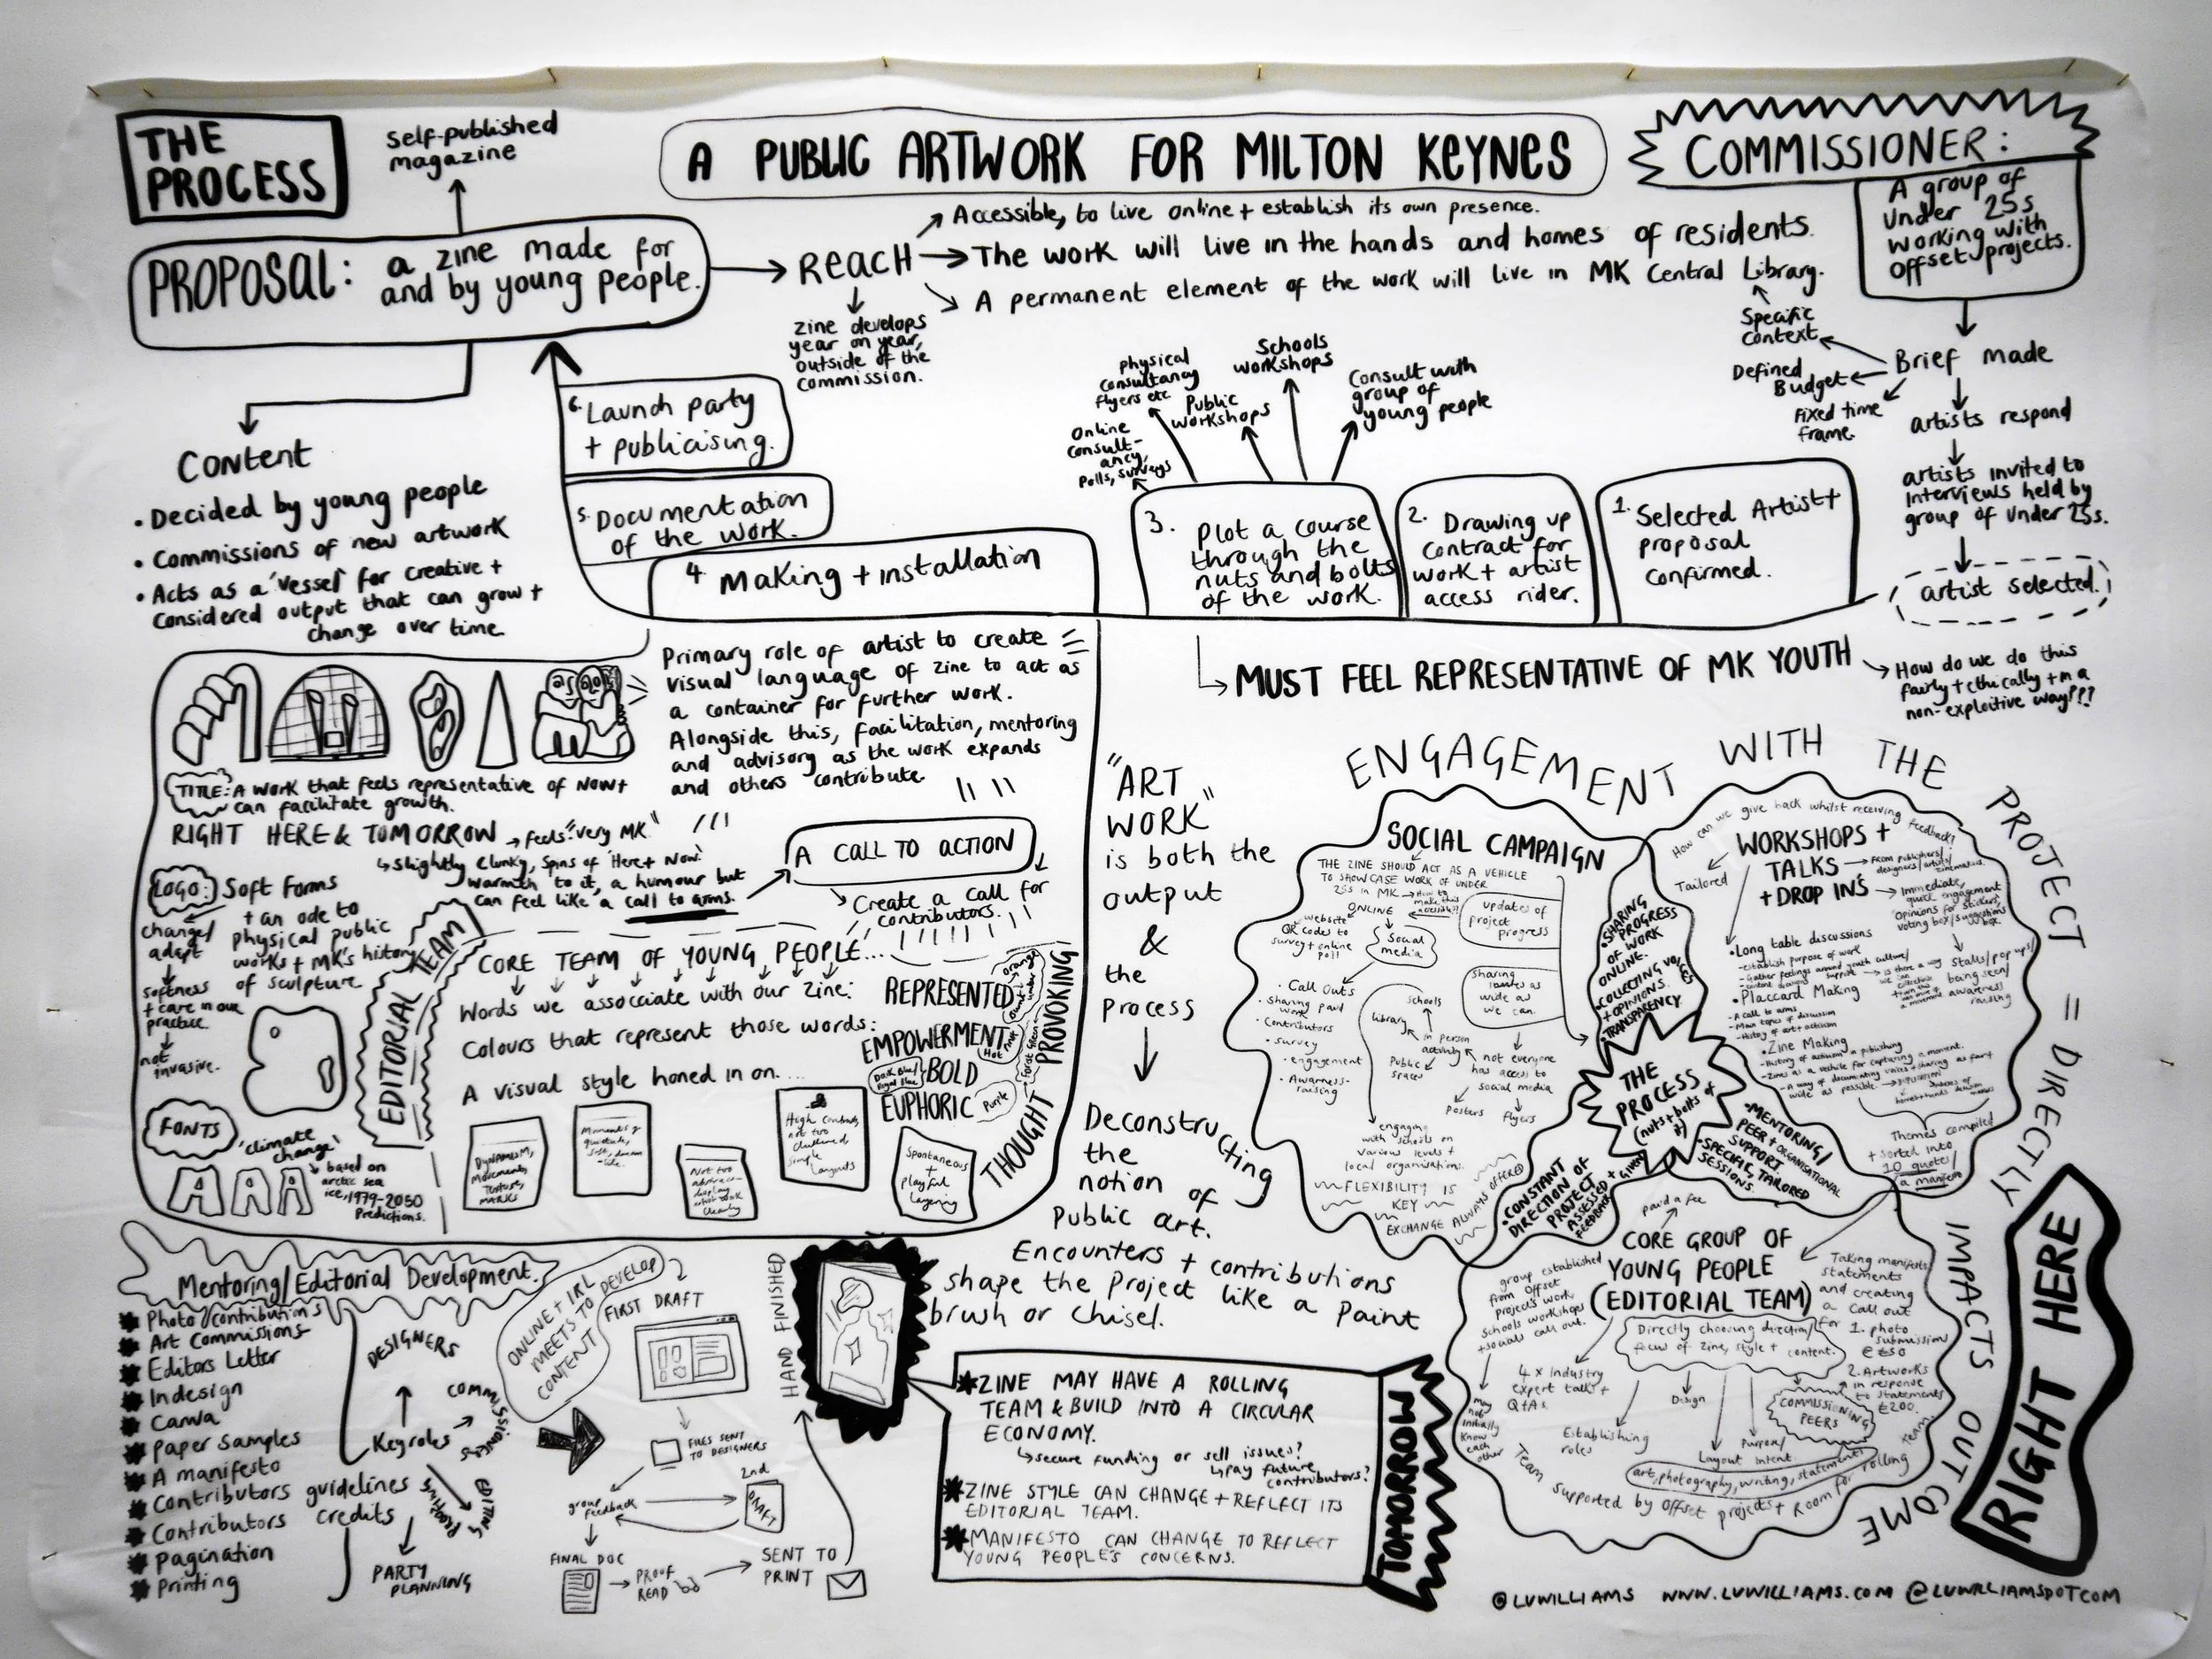 THE
PROCESS
Self-published
magazine
A PUBLIC ARTWORK FOR MILTON KEYNES
COMMISSIONER:
A group of
Under 25s
working with
Offset projects.
PROPOSAL:
a zine made for
and by young people.
REACH
Accessible, to live online + establish its own presence.
The work will live in the hands and homes of residents.
A permanent element of the work will live in MK Central Library.
zine develops
year on year,
outside of the
commission.
Brief made
Specific
Context
Defined
Budget
Fixed time
frame.
artists respond
artists invited to
interviews held by
group of Under 25s.
artist selected.
1. Selected Artist +
proposal
confirmed.
2. Drawing up
contract for
work + artist
access rider.
3. Plot a course
through the
nuts and bolts
of the work.
Online
consult-
ancy,
polls, surveys
physical
consultancy
flyers etc
Public
workshops
Schools
workshops
Consult with
group of
young people
4 Making + installation
5. Documentation
of the work.
6. Launch party
+ publicising.
Content
• Decided by young people
• Commissions of new artwork
• Acts as a 'vessel' for creative +
considered output that can grow +
change over time
MUST FEEL REPRESENTATIVE OF MK YOUTH
How do we do this
fairly + ethically + in a
non-exploitive way???
Primary role of artist to create
visual language of zine to act as
a container for further work.
Alongside this, facilitation, mentoring
and advisory as the work expands
and others contribute
TITLE: A work that feels representative of NOW +
can facilitate growth.
RIGHT HERE & TOMORROW
feels "very MK"
slightly clunky, spins of 'Here + Now'
warmth to it, a humour but
can feel like a call to arms.
A CALL TO ACTION
Create a call for
contributors.
LOGO: Soft forms
+ an ode to
physical public
works + MK's history
of sculpture
change/
adapt
softness
+ care in our
practice
not
invasive.
FONTS
'climate
change'
based on
arctic sea
ice, 1979-2050
Predictions.
AAA
EDITORIAL TEAM
CORE TEAM OF YOUNG PEOPLE...
Words we associate with our zine:
Colours that represent those words:
A visual style honed in on....
REPRESENTED
orange
EMPOWERMENT
Hot Pink
BOLD
Dark Blue/
Royal Blue
EUPHORIC
Purple
THOUGHT PROVOKING
Forest Green
DYNAMISM,
Movement,
Texture,
MARKS
Moments of
quietude,
soft, dream
-like.
Not too
abstract-
display
Clearly
High contrast,
not too
cluttered,
simple
layouts
Spontaneous
+
playful
layering
"ART
WORK"
is both the
output
&
the
process
Deconstructing
the
notion of
Public art.
Encounters + contributions
shape the project like a paint
brush or chisel.
ENGAGEMENT WITH THE PROJECT = DIRECTLY IMPACTS OUTCOME
SOCIAL CAMPAIGN
THE ZINE SHOULD ACT AS A VEHICLE
TO SHOWCASE WORK OF UNDER
25s IN MK
How to
make this
accessible?!
ONLINE
website
QR codes to
survey + online
poll
Social
media
updates of
project
progress
sharing
as
wide as
we can.
• Call Outs
• Sharing paid
work
• Contributors
• survey
• engagement
• Awareness-
raising
schools
library
in person
activity
Public
spaces
not everyone
has access to
social media
Posters
flyers
engaging
with schools on
various levels +
local organisations.
FLEXIBILITY IS
KEY
EXCHANGE ALWAYS OFFERED
• SHARING
PROGRESS
OF WORK
ONLINE.
• COLLECTING VOICES
+ OPINIONS.
• TRANSPARENCY
How can we give back whilst receiving feedback?
WORKSHOPS +
TALKS
+ DROP INS
Tailored
From publishers/
designers/artists/
Immediate,
quick engagement
Opinions for stickers,
voting box/suggestions
box.
stalls/pop ups/
being seen/
awareness
raising
• Long table discussions
- establish purpose of work
- Gather feelings around youth culture/
support
• Placcard Making
- A call to arms
- Main topics of discussion
- History of art + activism
• Zine Making
- History of activism + publishing
- Zines as a vehicle for capturing a moment.
- A way of documenting voices + sharing as far +
wide as possible.
Themes compiled
+ sorted into
10 quotes/
a manifesto
THE
PROCESS
(nuts + bolts of
it)
• MENTORING/
PEER + ORGANISATIONAL
SUPPORT
• SPECIFIC, TAILORED
SESSIONS.
• CONSTANT
DIRECTION OF
PROJECT
ASSESSED + GIVEN
FEEDBACK
paid a fee
CORE GROUP OF
YOUNG PEOPLE
(EDITORIAL TEAM)
group established
from Offset
projects work,
schools workshops
+ socials call out.
may
not
initially
know
each
other
Directly choosing direction/
focus of zine, style + content.
4 x Industry
expert talks +
Q+As
Establishing
roles
Design
Layout
Purpose/
Intent.
COMMISSIONING
PEERS
art, photography, writing, statements
Taking manifesto
statements
and creating
a call out
for 1. photo
submission
@ £50
2. Artworks
in response
to statements
£200.
Team supported by Offset projects + Room for rolling team
Mentoring/Editorial Development.
Photo/contributions
Art Commissions
Editors Letter
Indesign
Canva
Paper samples
A manifesto
Contributors guidelines
Contributors credits
Pagination
Printing
Key roles
DESIGNERS
COMMISSIONERS
EDITING
PROOFING
PARTY
PLANNING
ONLINE + IRL
MEETS TO DEVELOP
CONTENT
FIRST DRAFT
FILES SENT
TO DESIGNERS
group
feedback
2nd
DRAFT
FINAL DOC
PROOF
READ
SENT TO
PRINT
HAND FINISHED
ZINE MAY HAVE A ROLLING
TEAM & BUILD INTO A CIRCULAR
ECONOMY.
secure funding or sell issues?
pay future
contributors?
ZINE STYLE CAN CHANGE + REFLECT ITS
EDITORIAL TEAM.
MANIFESTO CAN CHANGE TO REFLECT
YOUNG PEOPLE'S CONCERNS.
TOMORROW
RIGHT HERE
@LUWILLIAMS WWW.LUWILLIAMS.COM @LUWILLIAMSDOTCOM